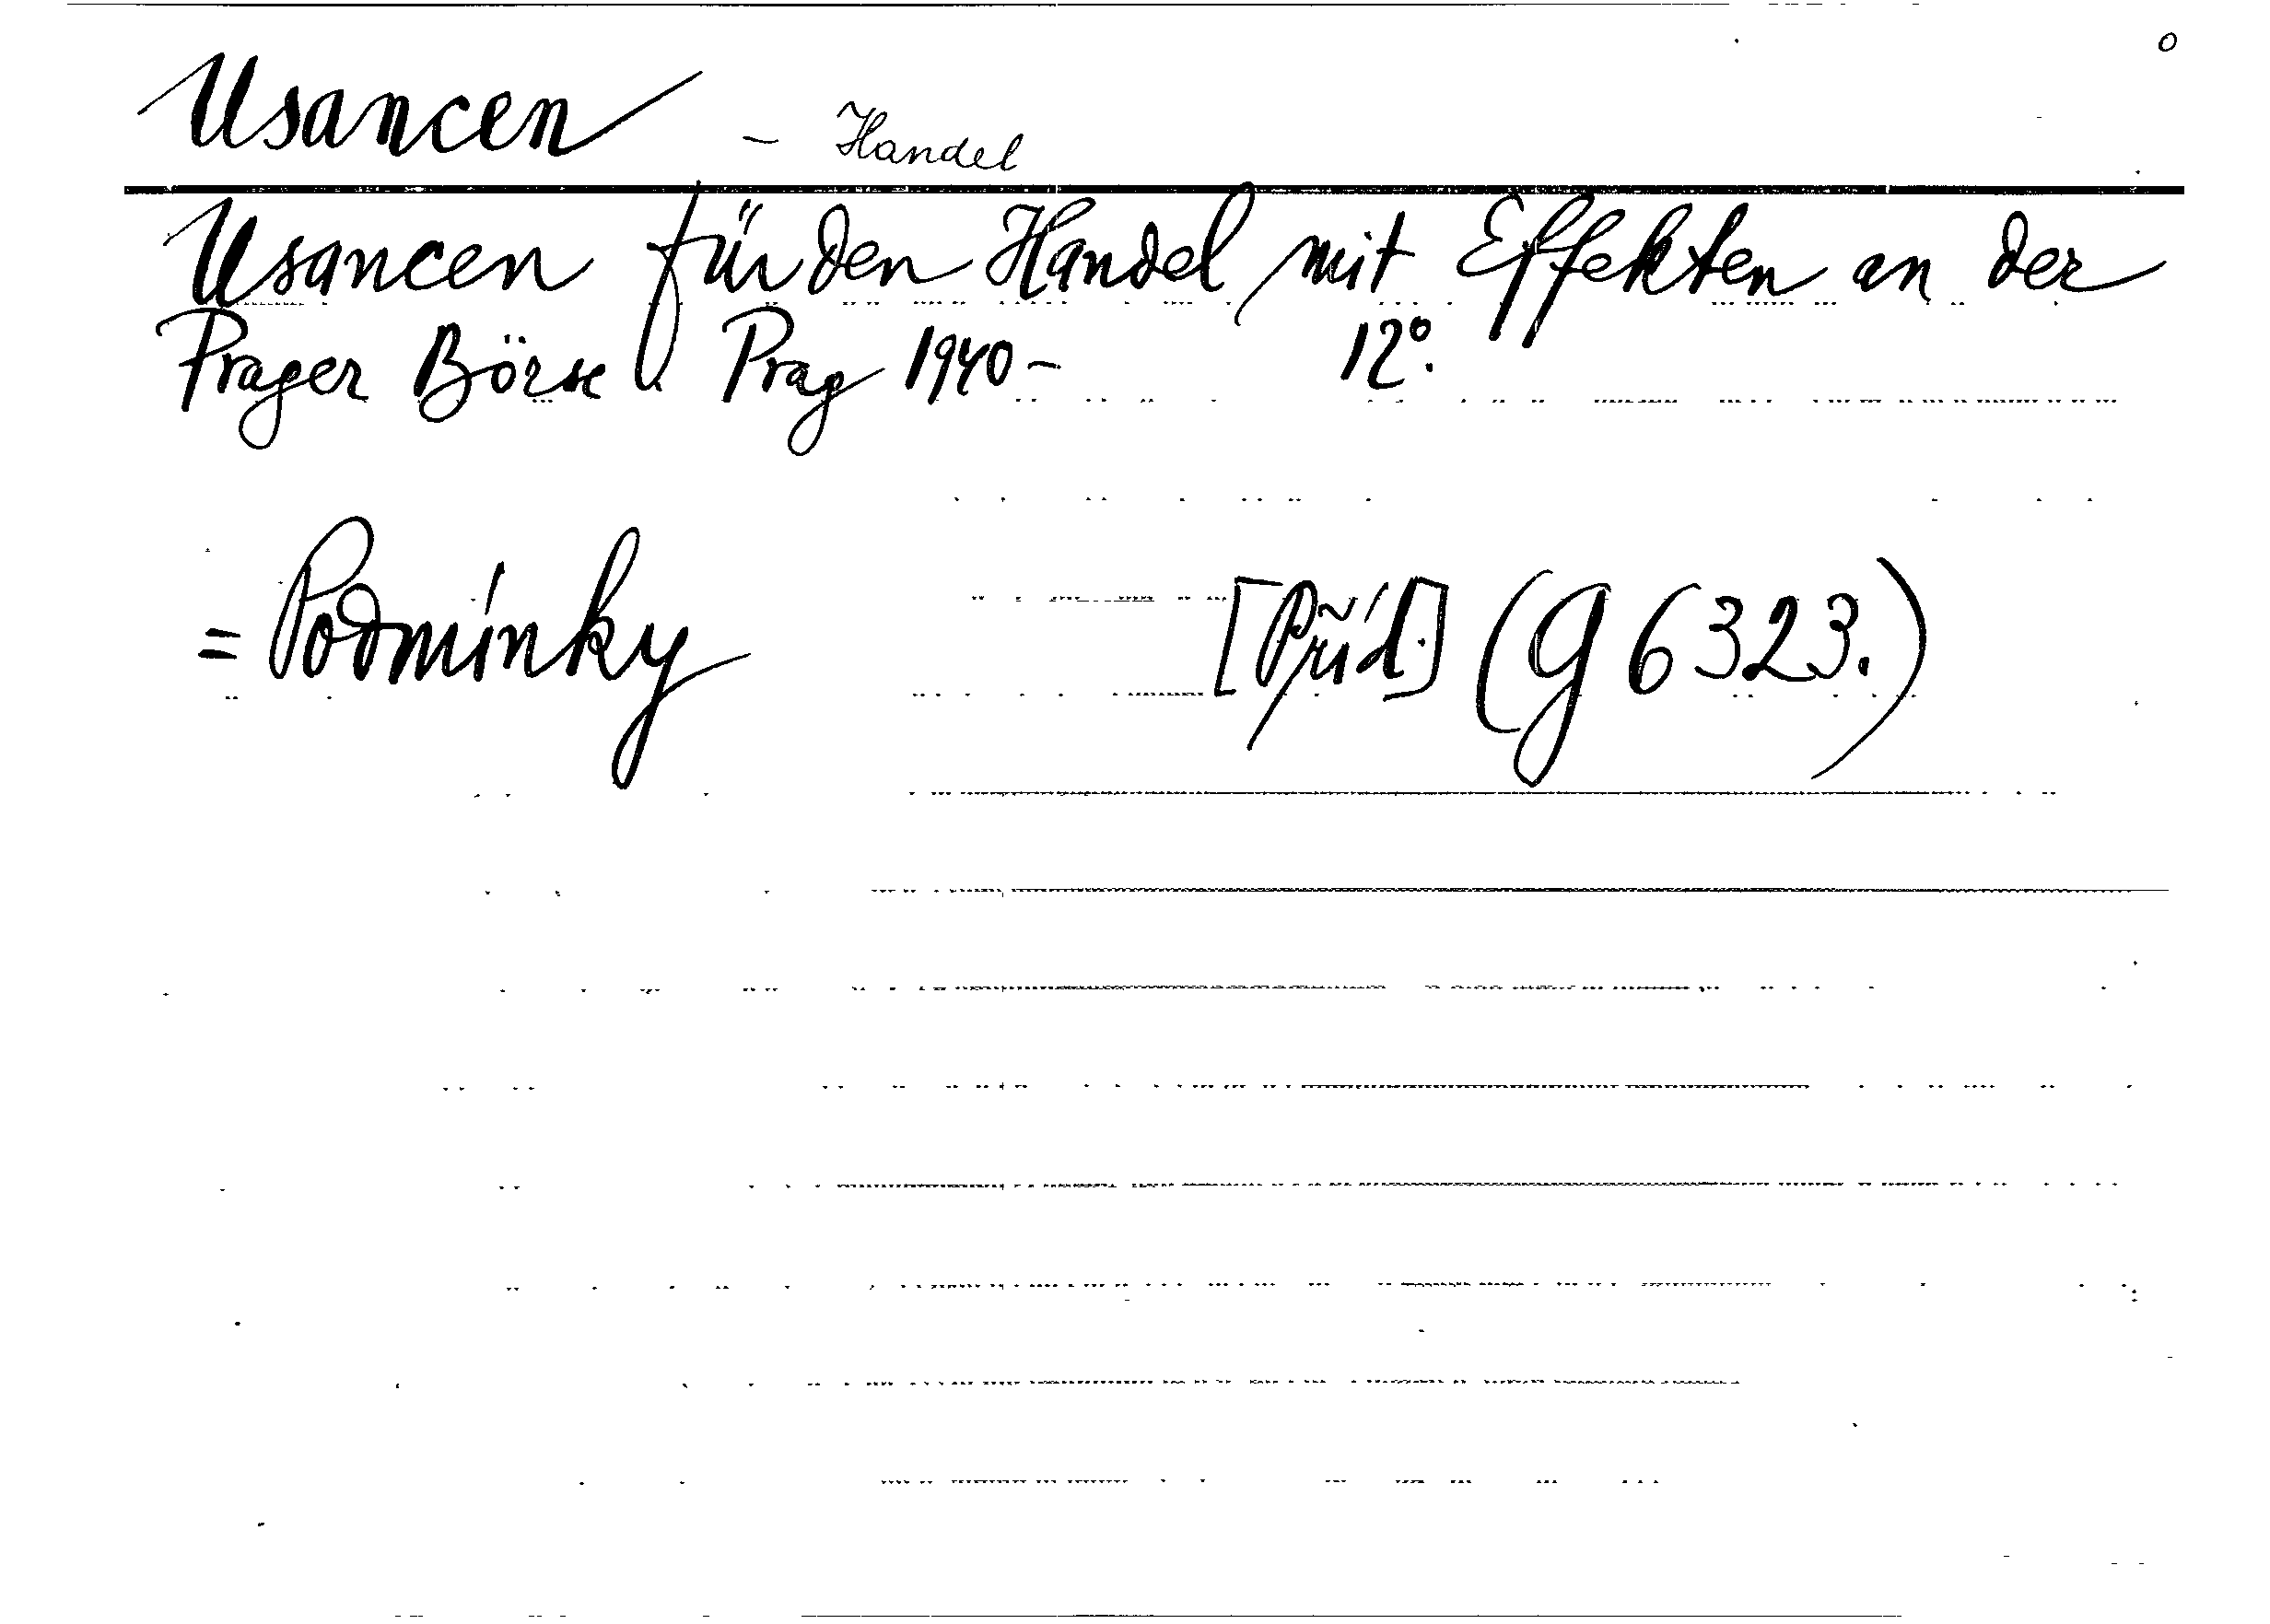 o
Usancen - Handel
Usancen für den Handel mit Effekten an der
Prager Börse. Prag 1940- 12°.
= Podmínky [Příd.] (G 6323.)